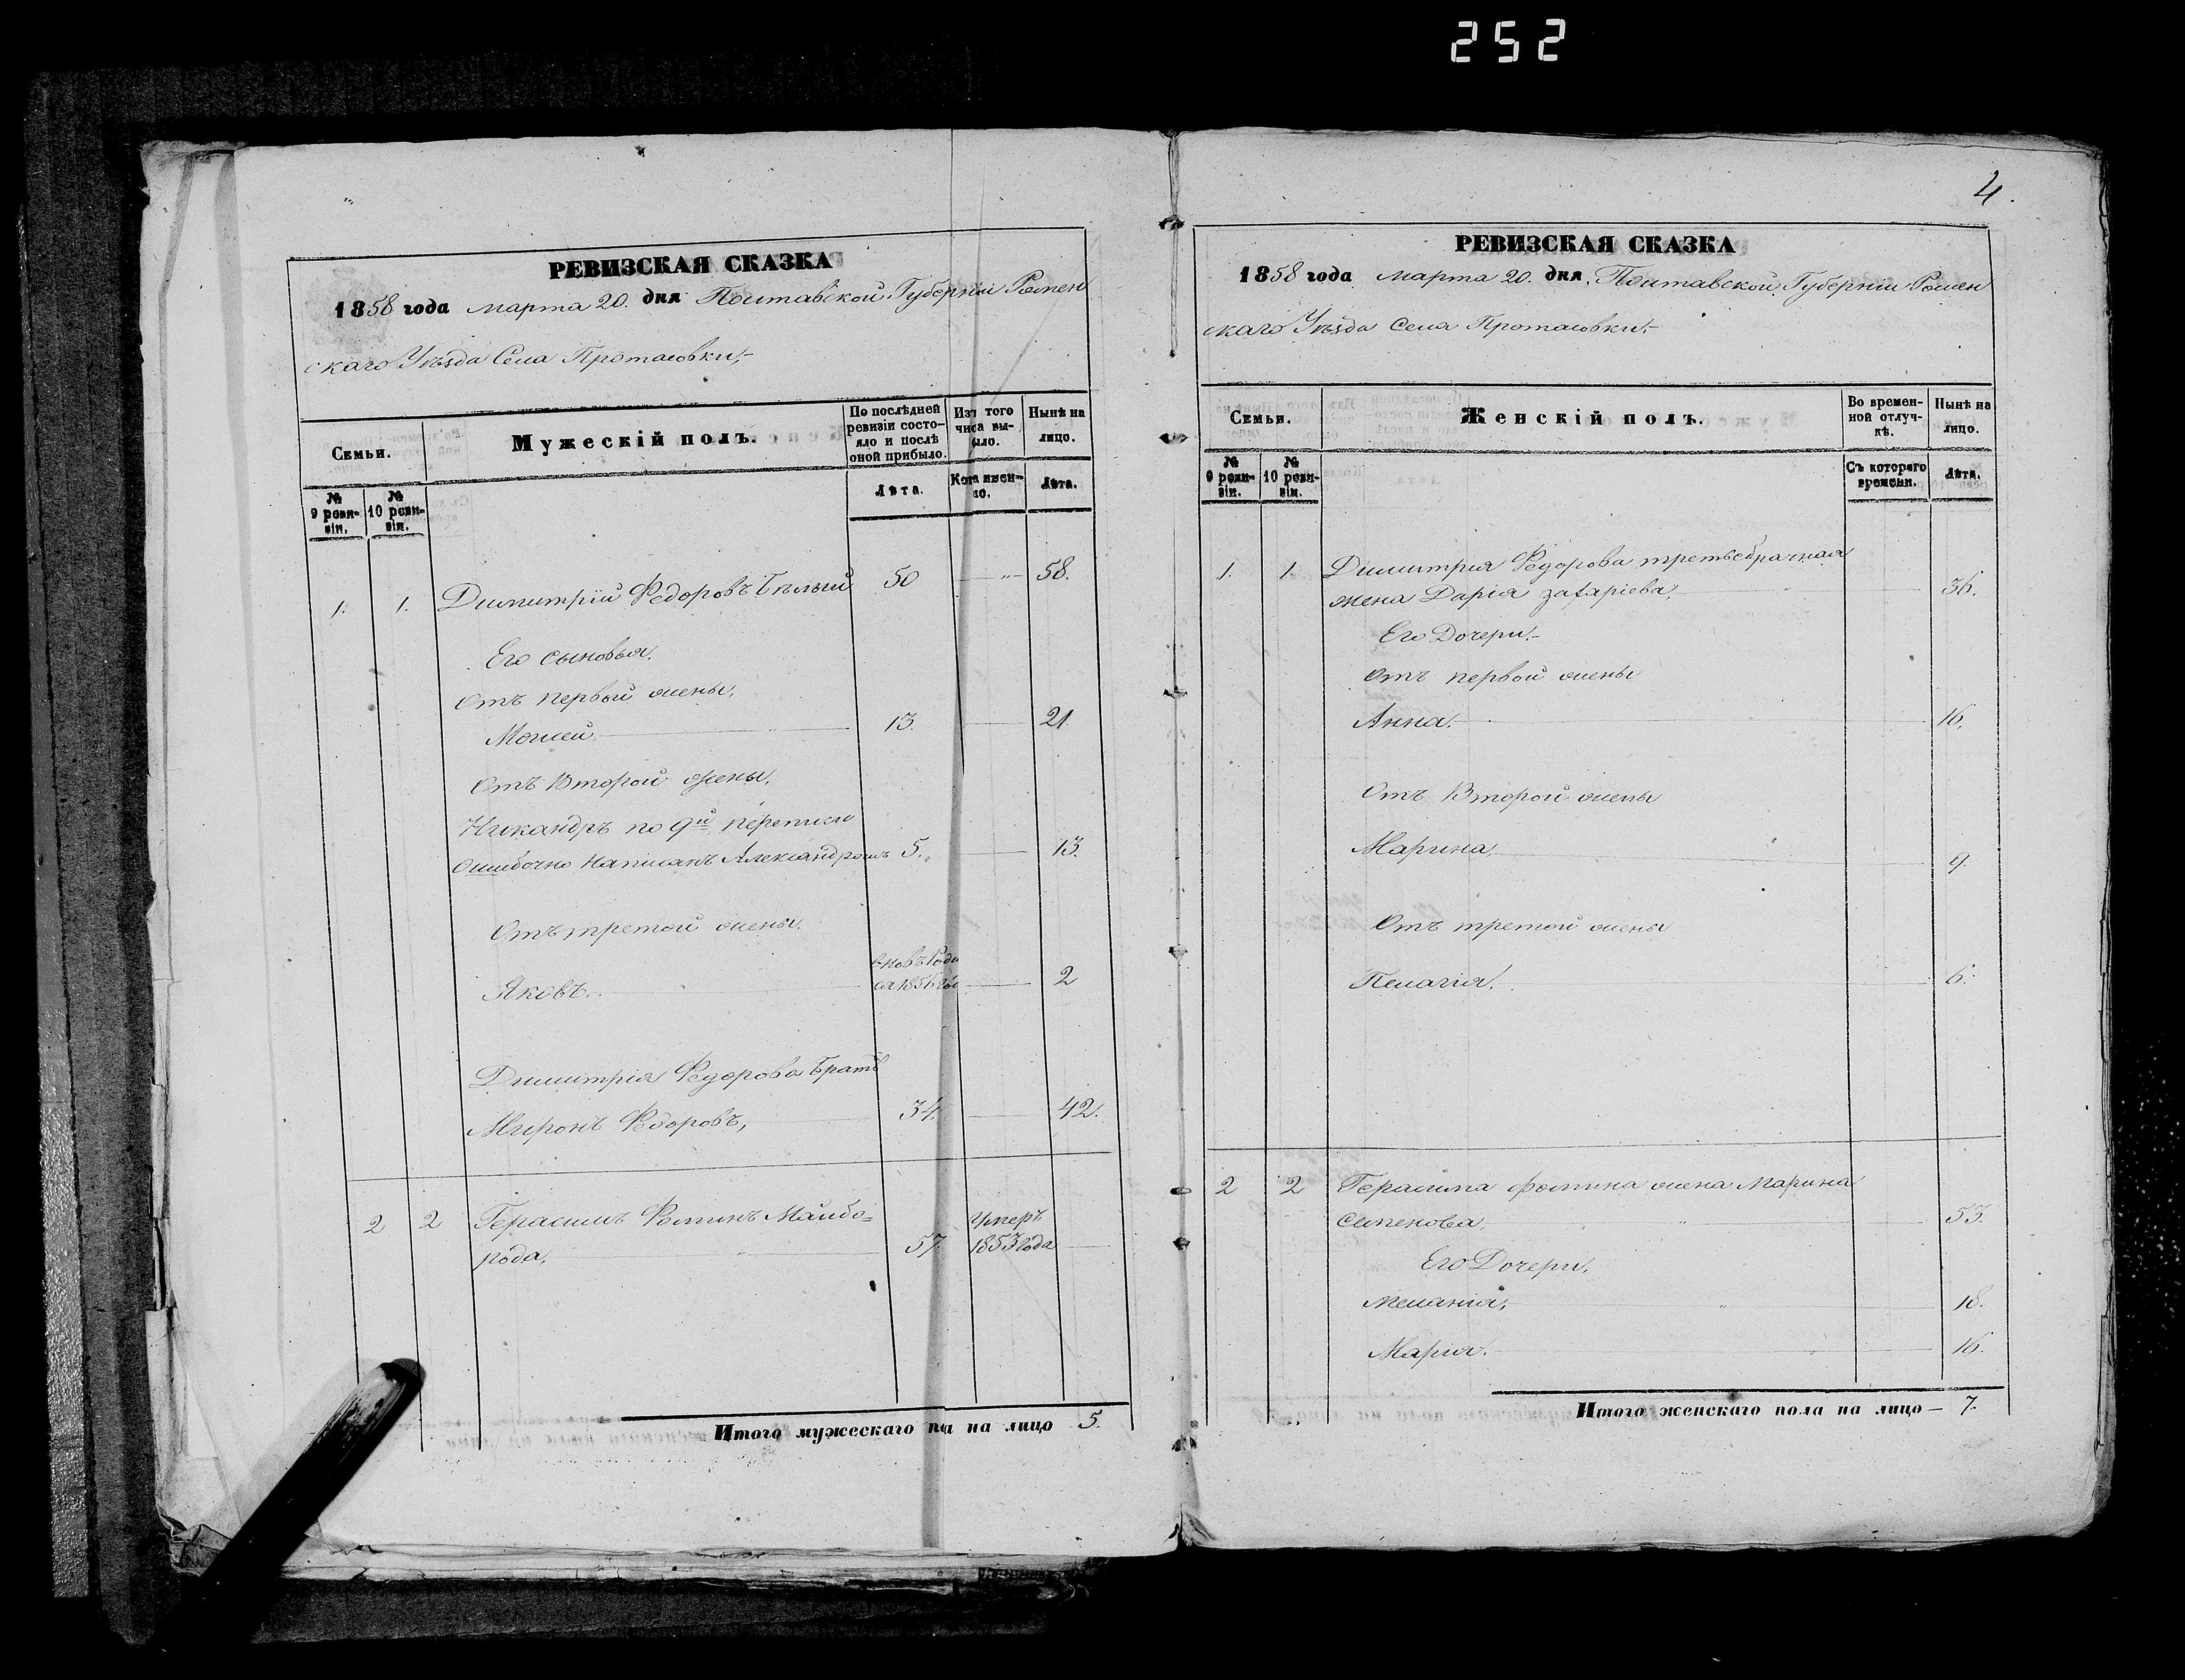 252
РЕВИЗСКАЯ СКАЗКА
1858 года марта 20. дня Полтавской Губерніи Ромен
скаго Уѣзда Села Протасовки,-
Семьи.
Мужескій полъ.
По послѣдней ревизіи состояло и послѣ оной прибыло.
Изъ того числа выбыло.
Нынѣ на лицо.
№ 9 ревизіи.
№ 10 ревизіи.
Лѣта.
Когда именно.
Лѣта.
1. 1. Димитрій Федоровъ Бѣлый 50 —"— 58.
Его сыновья.
Отъ первой жены.
Моисей. 13. 21.
Отъ Второй жены.
Никандръ по 9й переписи
ошибочно написанъ Александромъ 5. 13.
Отъ третой жены.
вновь роди
Яковъ. ся 1856 го 2
Димитрія Федорова Братъ
Миронъ Федоровъ, 34. 42.
2 2 Герасимъ Фоминъ Майбо=
рода, 57. умеръ 1853 года
Итого мужескаго по на лицо 5.
4.
РЕВИЗСКАЯ СКАЗКА
1858 года марта 20. дня. Полтавской Губерніи Ромен
скаго Уѣзда Села Протасовки.-
Семьи.
Женскій полъ.
Во временной отлучкѣ.
Нынѣ на лицо.
№ 9 ревизіи.
№ 10 ревизіи.
Съ котораго времени.
Лѣта.
1. 1. Димитрия Федорова третьебрачная
жена Дарія Захаріева. 36.
Его Дочери.-
Отъ первой жены
Анна. 16.
Отъ Второй жены
Марина. 9.
Отъ третой жены
Пелагія. 6.
2 2 Герасима Фомина жена Марина
Семенова, 53.
Его Дочери.
Меланія, 18.
Марія. 16.
Итого женскаго пола на лицо — 7.